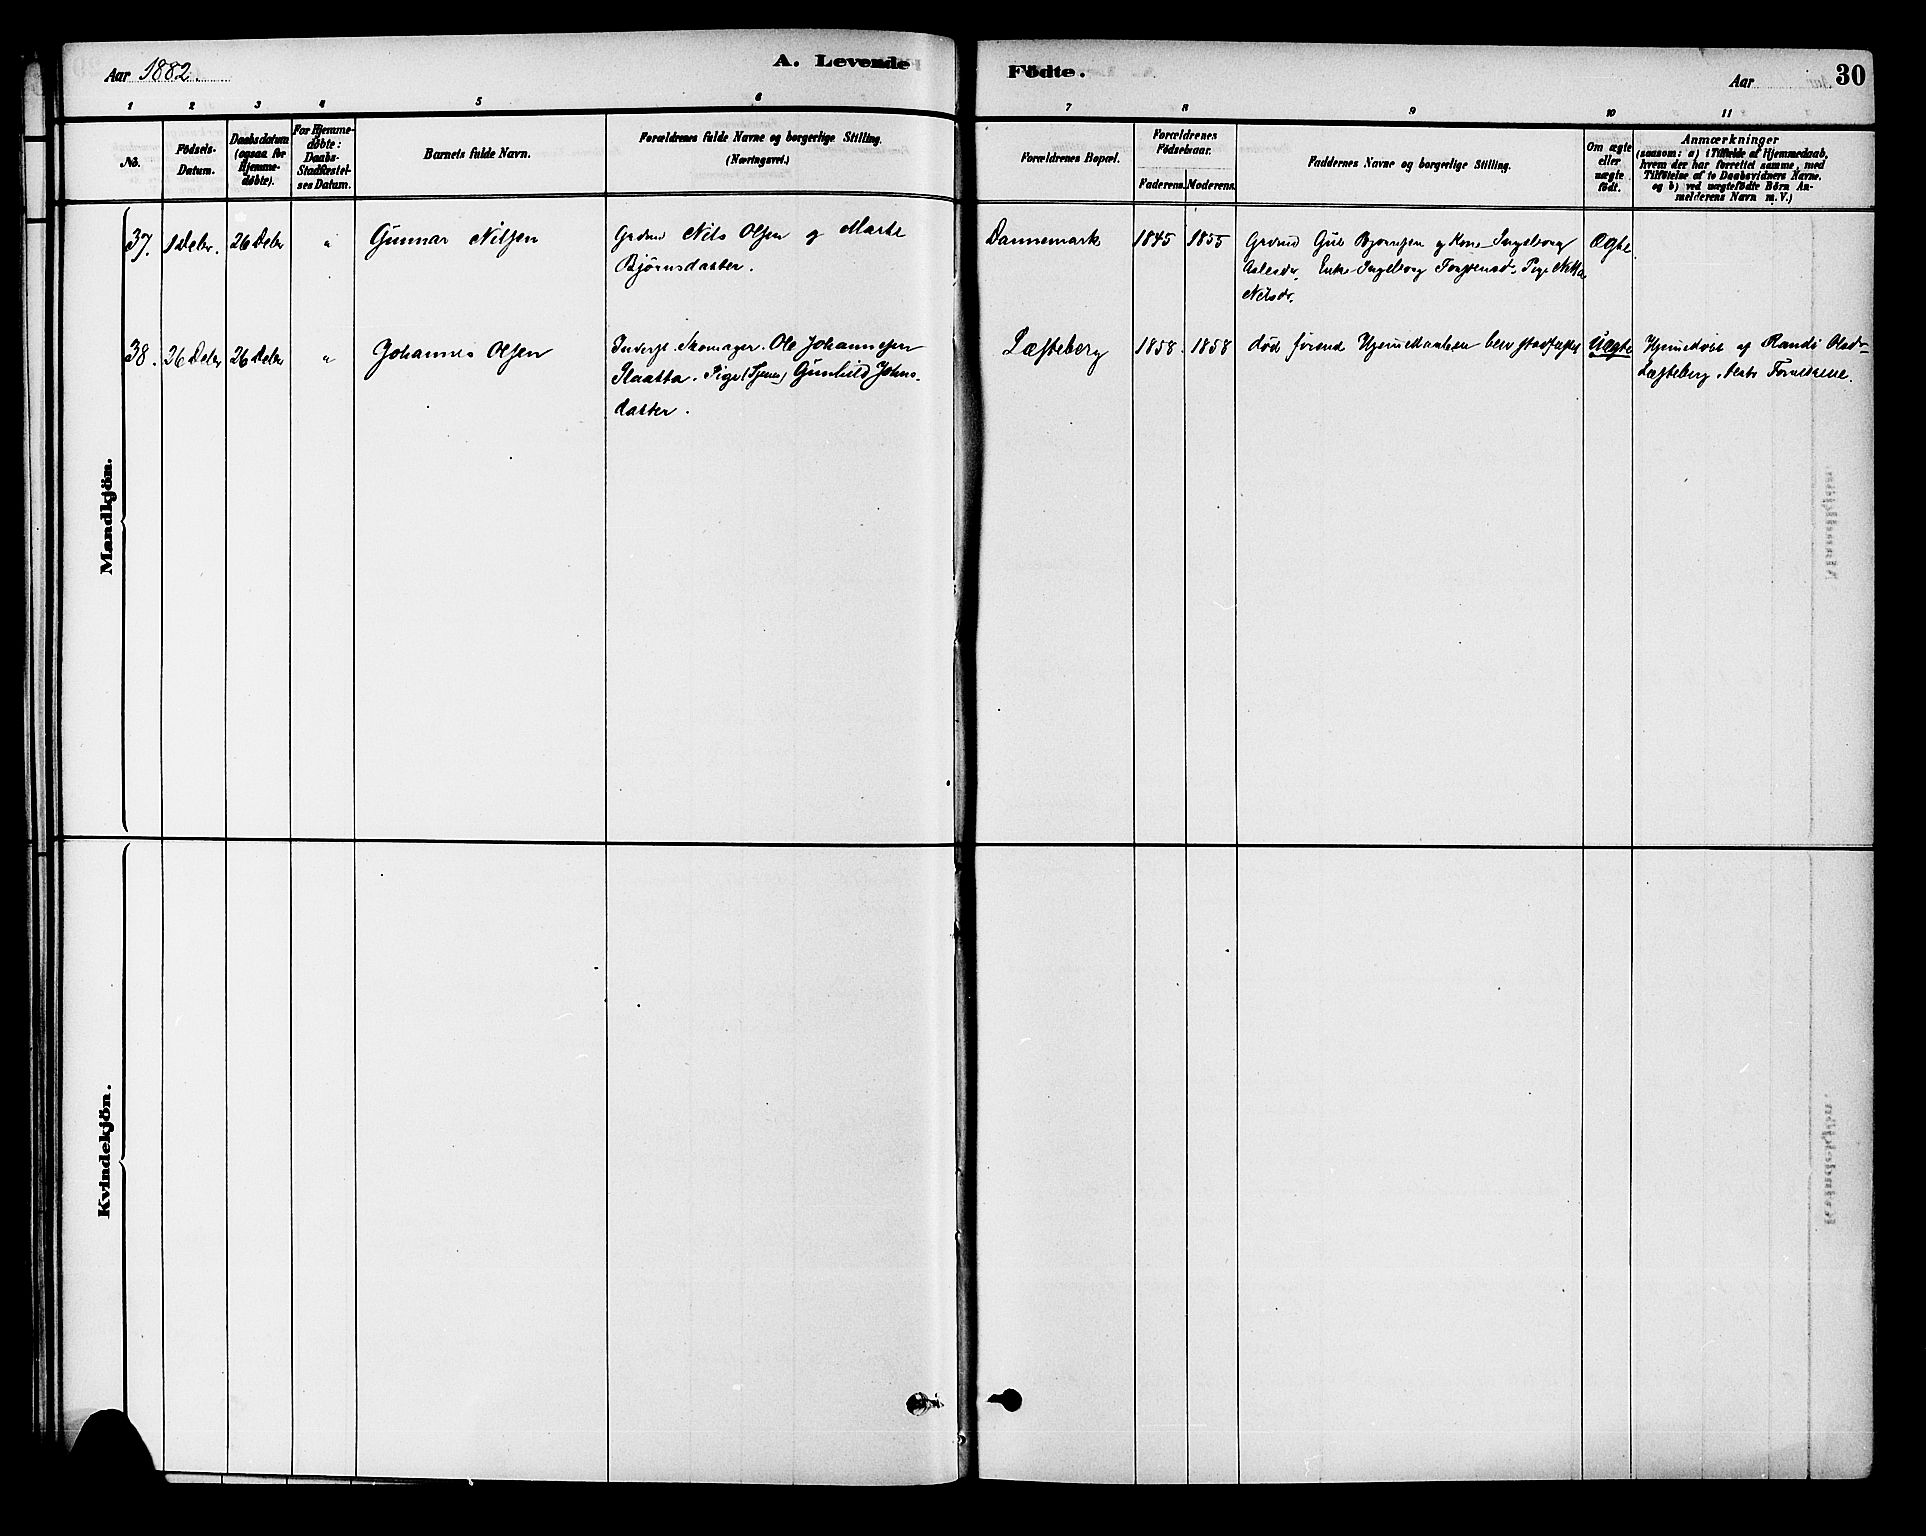 Aar 1882.
A. Levende
Födte.
Aar
30
1 2 3 4 5 6 7 8 9 10 11
No.
Födsels-
Datum.
Daabsdatum
(ogsaa for
Hjemme-
døbte).
For Hjemme-
døbte:
Daabs-
Stadfæstel-
ses Datum.
Barnets fulde Navn.
Forældrenes fulde Navne og borgerlige Stilling.
(Næringsvei.)
Forældrenes Bopæl.
Forældrenes
Födselsaar.
Faderens. Moderens.
Faddernes Navne og borgerlige Stilling.
Om ægte
eller
uægte
födt.
Anmærkninger
(saasom: a) i Tilfælde af Hjemmedaab,
hvem der har forrettet samme, med
Tilföielse af to Daabsvidners Navne.
og b) ved uægtefödte Börn An-
melderens Navn m. V.)
Mandkjön.
37. 1 Decbr. 26 Decbr " Gunnar Nilsen
Grdmd Nils Olsen og Marte
Bjørnsdatter.
Dannemark 1845 1855
Grdmd Gulb Bjørnsen og Kone Ingeborg
Aslesdr, Enke Ingeborg Torstensd. Pige
Nilsdr.
Ægte
38. 26 Decbr 26 Decbr " Johannes Olsen
Inderst. Skomager. Ole Johannesen
Slaatta. Pige (Tjener) Gunhild Johns-
datter.
Læfteberg 1858. 1858
død førend Hjemmedaaben blev stadfæstet
Uægte
Hjemmedøbt af Randi Olsdr
Læfteberg, Forældrene.
Kvindekjön.